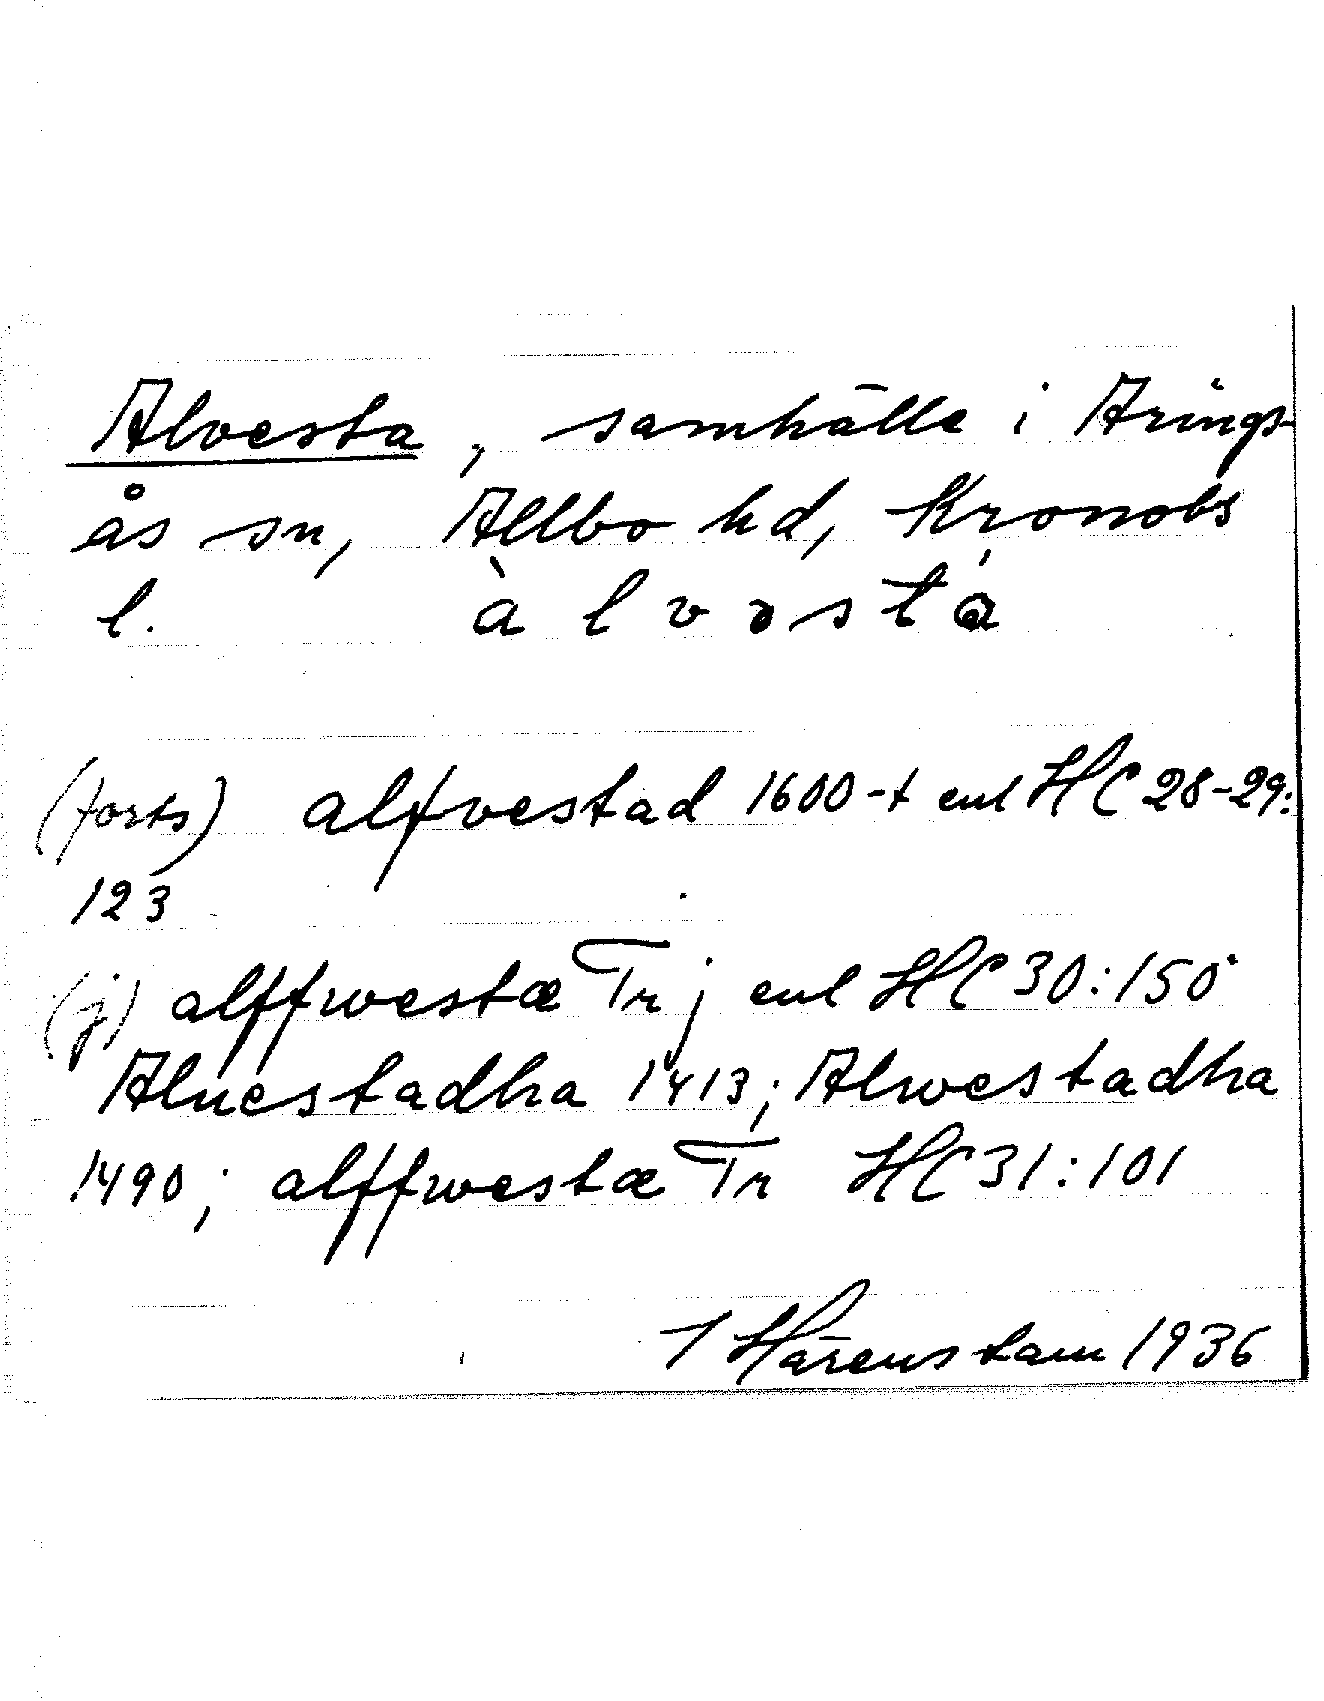 Alvesta, samhälle i Arings-
ås sn, Allbo hd, Kronobs
l. àlvəstá
(forts) alfvestad 1600-t enl HC 28-29:
123
(j) alffwestæ Tr j enl HC 30:150
Aluestadha 1413; Alwestadha
1490; alffwestæ Tr HC 31:101
I Härenstam 1936